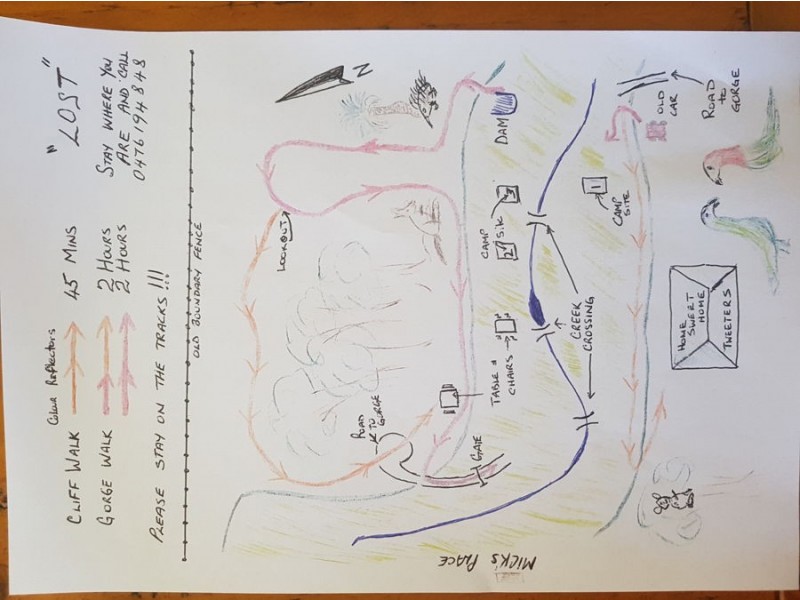 CLIFF WALK
Colour Reflectors
45 MINS
GORGE WALK
2 HOURS
2 HOURS
"LOST"
STAY WHERE YOU
ARE AND CALL
0476194848
PLEASE STAY ON THE TRACKS !!!
OLD BOUNDARY FENCE
N
LOOKOUT
ROAD
TO
GORGE
GATE
TABLE &
CHAIRS
CAMP
2
3
DAM
CREEK
CROSSING
1
CAMP
SITE
OLD
CAR
ROAD
TO
GORGE
HOME
SWERT
HOME
TWEETERS
MICK'S PLACE